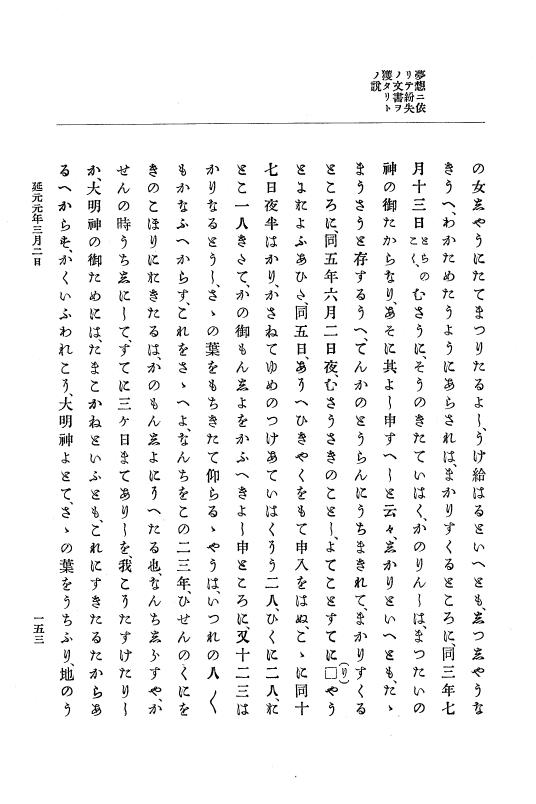 夢想ニ依
リテ紛失
ノ文書ヲ
獲タリト
ノ説
の女ゑやうにたてまつりたるよし、うけ給はるといへとも、ゑつゑやうな
きうへ、わかためたうようにあらされは、まかりすくるところに、同三年七
月十三日とらのこく、むさうに、そうのきたていはく、かのりんしは、まつたいの
神の御たからなり、あそに其よし申すへしと云々、ゑかりといへとも、たゝ
まうさうと存するうへ、てんかのとうらんにうちまきれて、まかりすくる
ところに、同五年六月二日夜、むさうさきのことし、よてことすてに□(り)やう
とよれよふあひさ、同五日、あうへひきやくをもて申入をはぬ、こゝに同十
七日夜半はかり、かさねてゆめのつけあていはくろう二人、ひくに二人、れ
とこ一人きさて、かの御もんゑよをかふへきよし申ところに、又十二三は
かりなるとうし、さゝの葉をもちきたて仰らるゝやうは、いつれの人〱
もかなふへからす、これをさゝへよ、なんちをこの二三年、ひせんのくにを
きのこほりにれきたるは、かのもんゑよにうへたる也、なんちゑらすや、か
せんの時うちゑにして、すてに三ケ日まてありしを、我こうたすけたりし
か、大明神の御ためには、たまこかねといふとも、これにすきたるたからあ
るへからも、かくいふわれこう、大明神よとて、さゝの葉をうちふり、地のう
延元元年三月二日
一五三